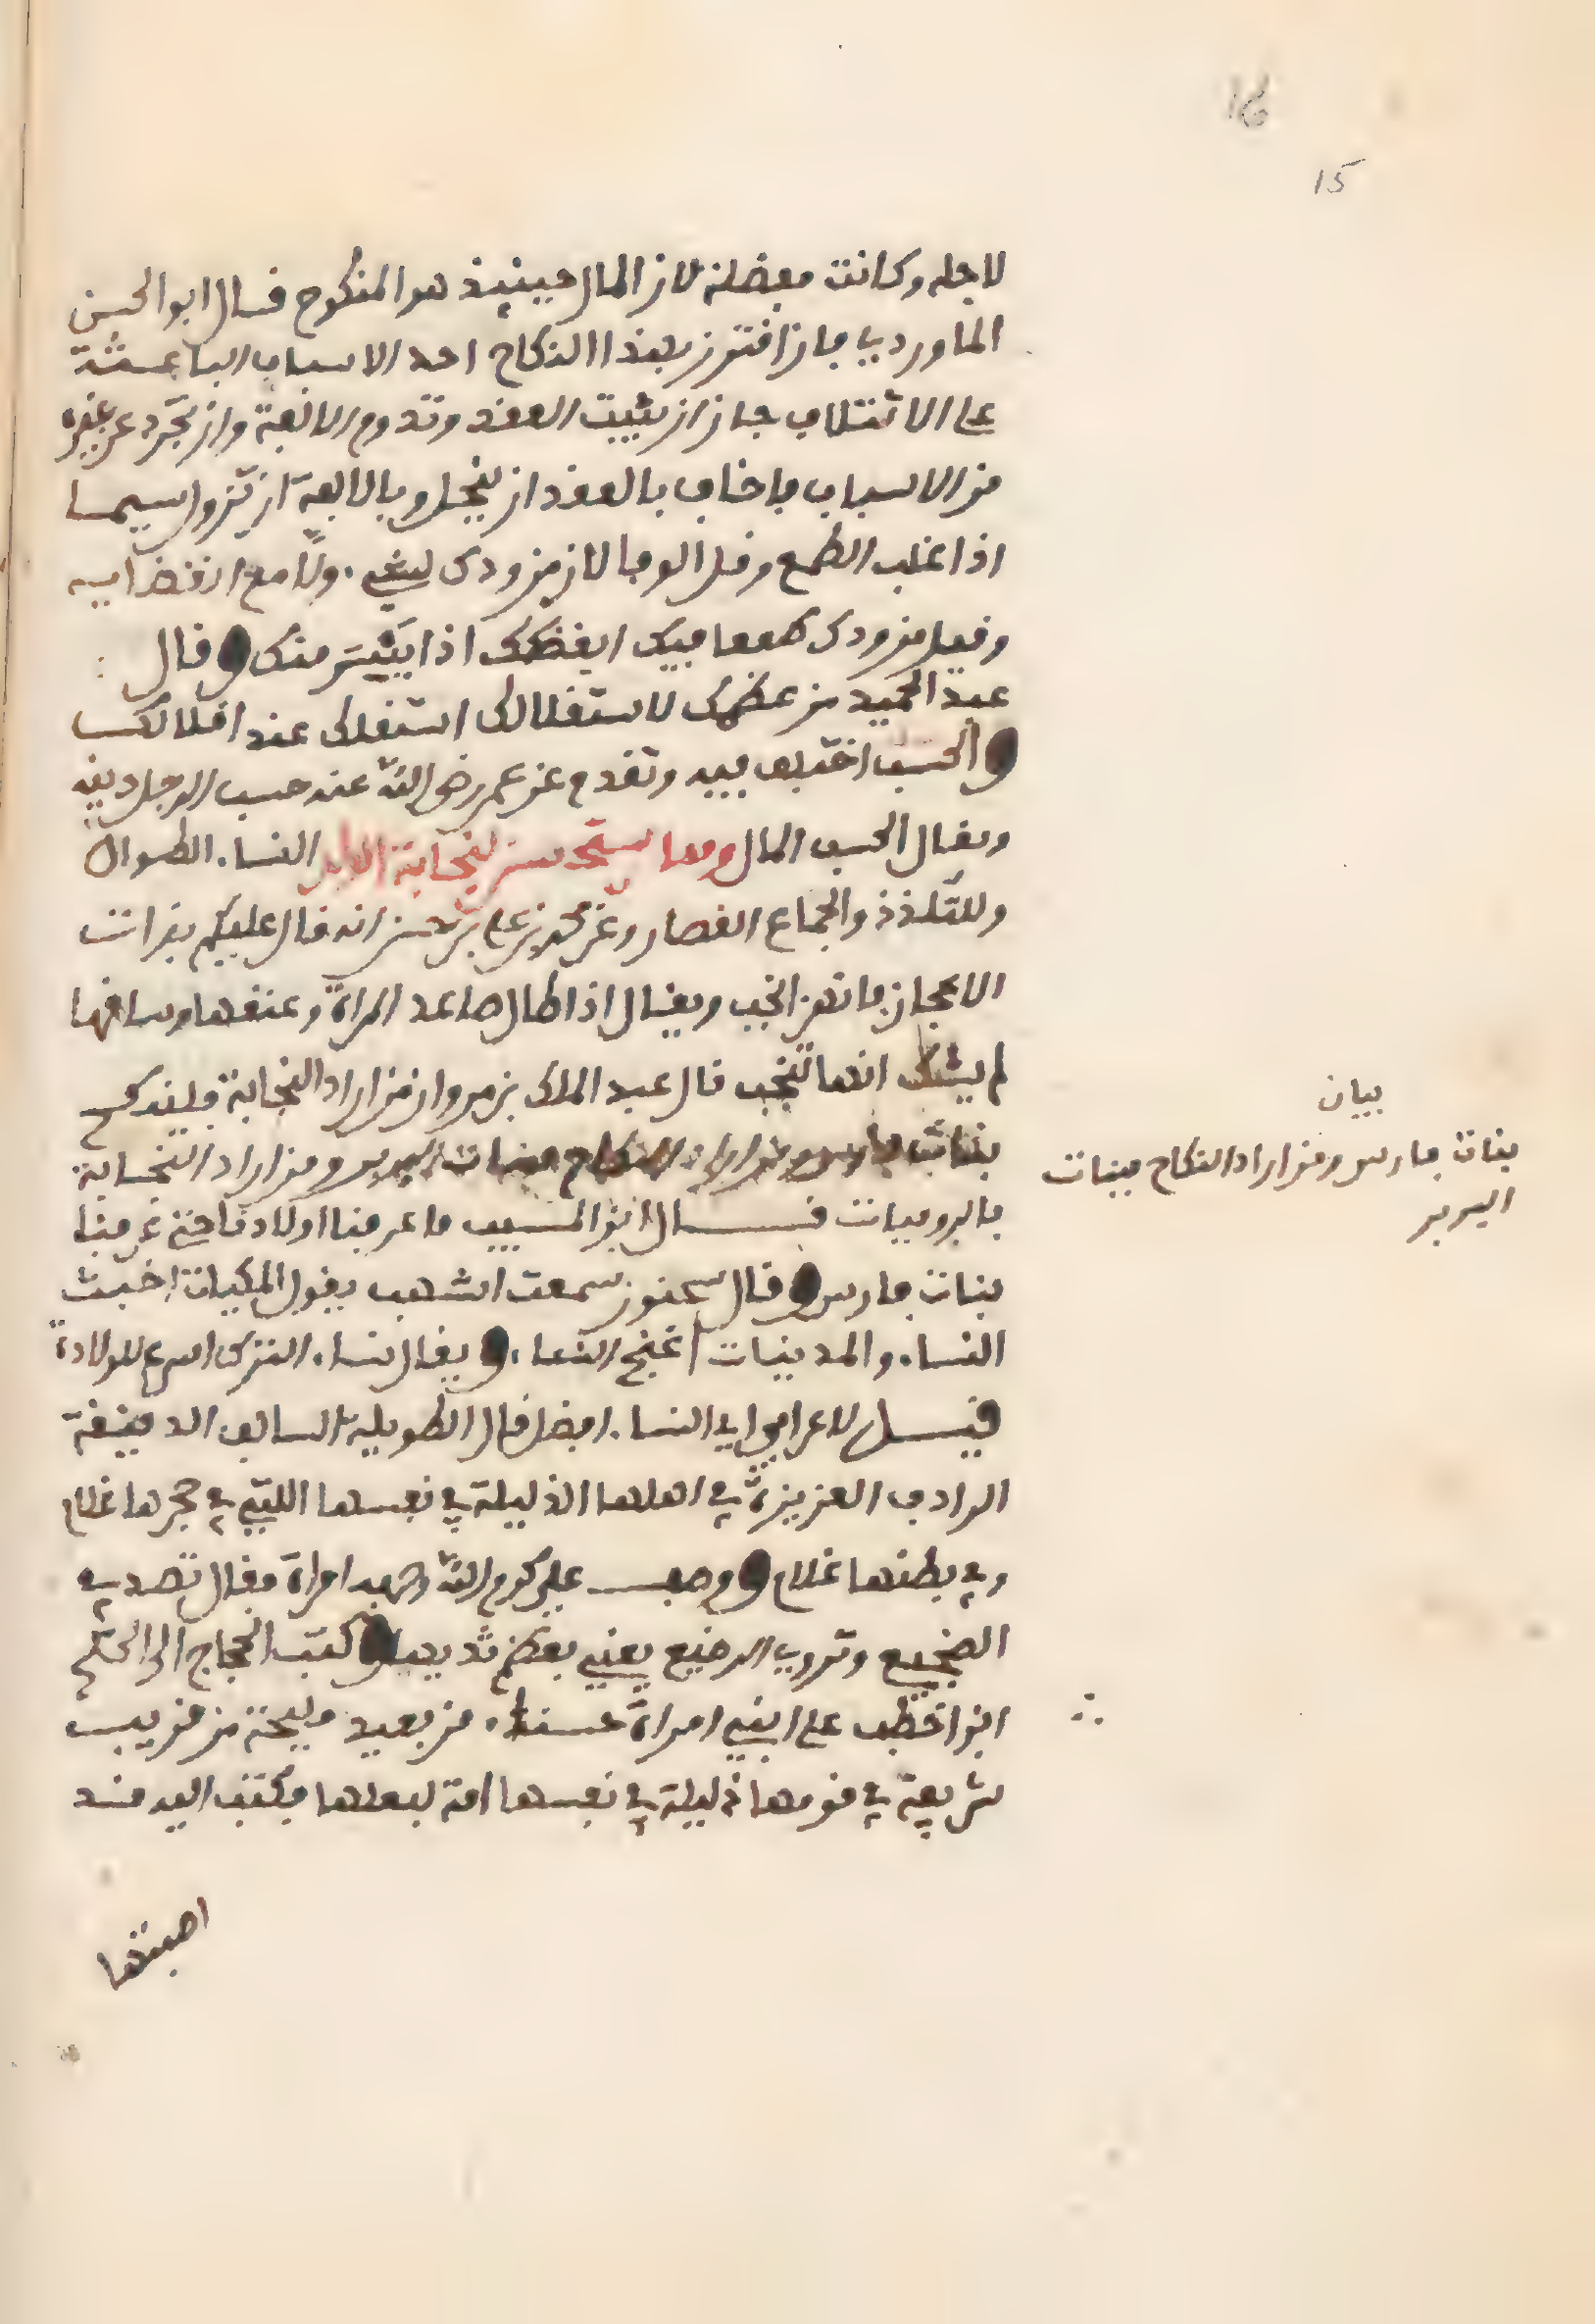 16
15
لاجله وكانت مفضلة لان المال حينئذ هو المنكوح قال ابو الحسن
الماوردي فان اقترن بهذا النكاح احد الاسباب الباعثة
على الائتلاف جاز ان يثبت العقد وتدوم الالفة وان تجرد عن غيره
من الاسباب فاخاف بالعقد ان ينحل وبالالفة ان تزول سيما
اذا غلب الطمع وقل الوفا لان من ودك لشيء ولا مع انقضايه
وقيل من ودك طمعا فيك ابغضك اذا يئس منك وقال
عبد الحميد من عظمك لاستقلالك استقلك عند اقلالك
والحسب اختلف فيه وتقدم عن عمر رضي الله عنه حسب الرجل دينه
ويقال الحسب المال ومما يستحسن لنجابة الولد النساء الطوال
وللتلذذ والجماع القصار وعن محمد بن علي بن حسن انه قال عليكم بذات
الاعجاز فانهن انجب ويقال اذا طال ساعد المراة وعنقها وساقها
لم يشك انها تنجب قال عبد الملك بن مروان من اراد النجابة فلينكح
بنات فارس ومن اراد النكاح فبنات البربر ومن اراد النجابة
فالروميات قال ابن المسيب ما عرفنا اولادنا حتى عرفنا
بنات فارس وقال سحنون سمعت اشهب يقول المكيات اخبث
النساء والمدينيات اغنج النساء ويقال نساء الترك اسرع للولادة
قيل لاعرابي اي النساء افضل قال الطويلة السالف الدقيقة
الرادف العزيزة في اهلها الذليلة في نفسها اللتي في حجرها غلام
وفي بطنها غلام ووصف علي كرم الله وجهه امراة فقال تصدي
الضجيع وتروي الرضيع يعني بعظم ثديها وكتب الحجاج الى الحكم
ان اخطب على ابني امراة حسناء من بعيد مليحة من قريب
شريفة في قومها ذليلة في نفسها امة لبعلها فكتب اليه قد
اصبتها
بيان
بنات فارس ومن اراد النكاح فبنات
البربر